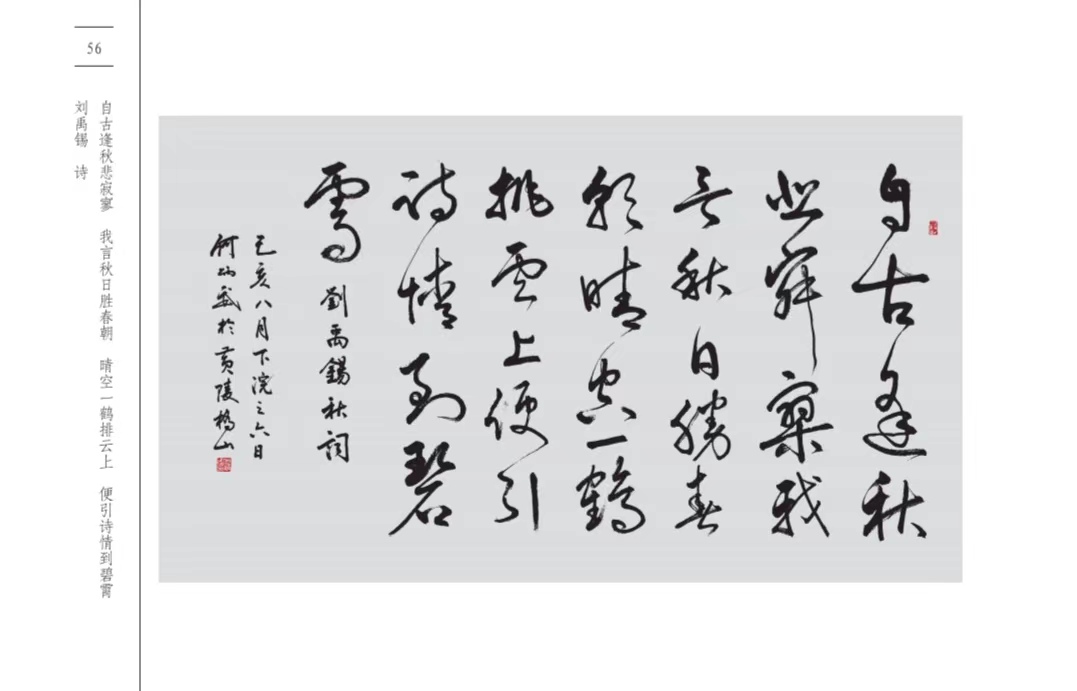 56
自古逢秋悲寂寥 我言秋日胜春朝 晴空一鹤排云上 便引诗情到碧霄
刘禹锡 诗
自古逢秋
悲寂寥我
言秋日勝春
朝晴空一鶴
排雲上便引
詩情到碧
霄
劉禹錫秋詞
己亥八月下浣之六日
何炳武於黄陵橋山